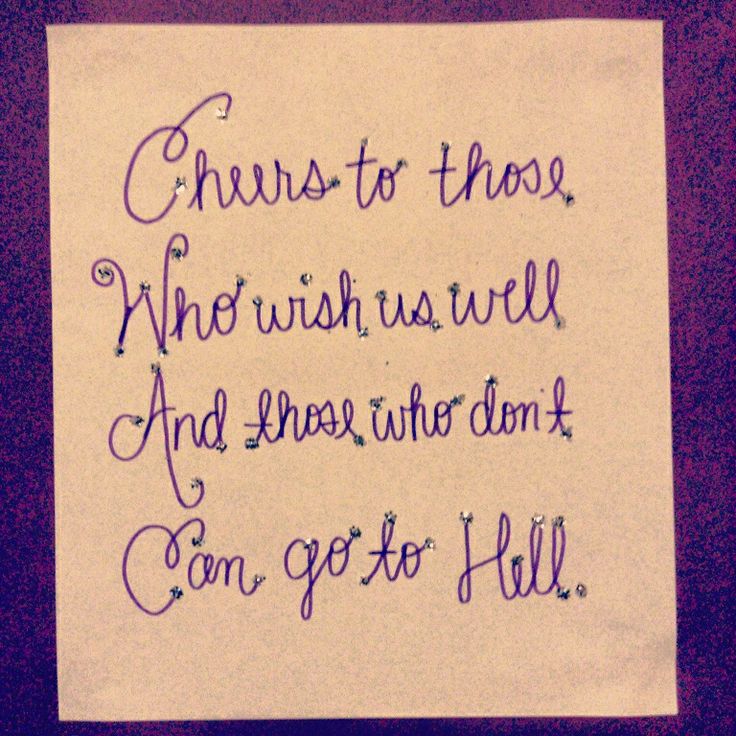 Cheers to those
Who wish us well
And those who don't
Can go to Hell.